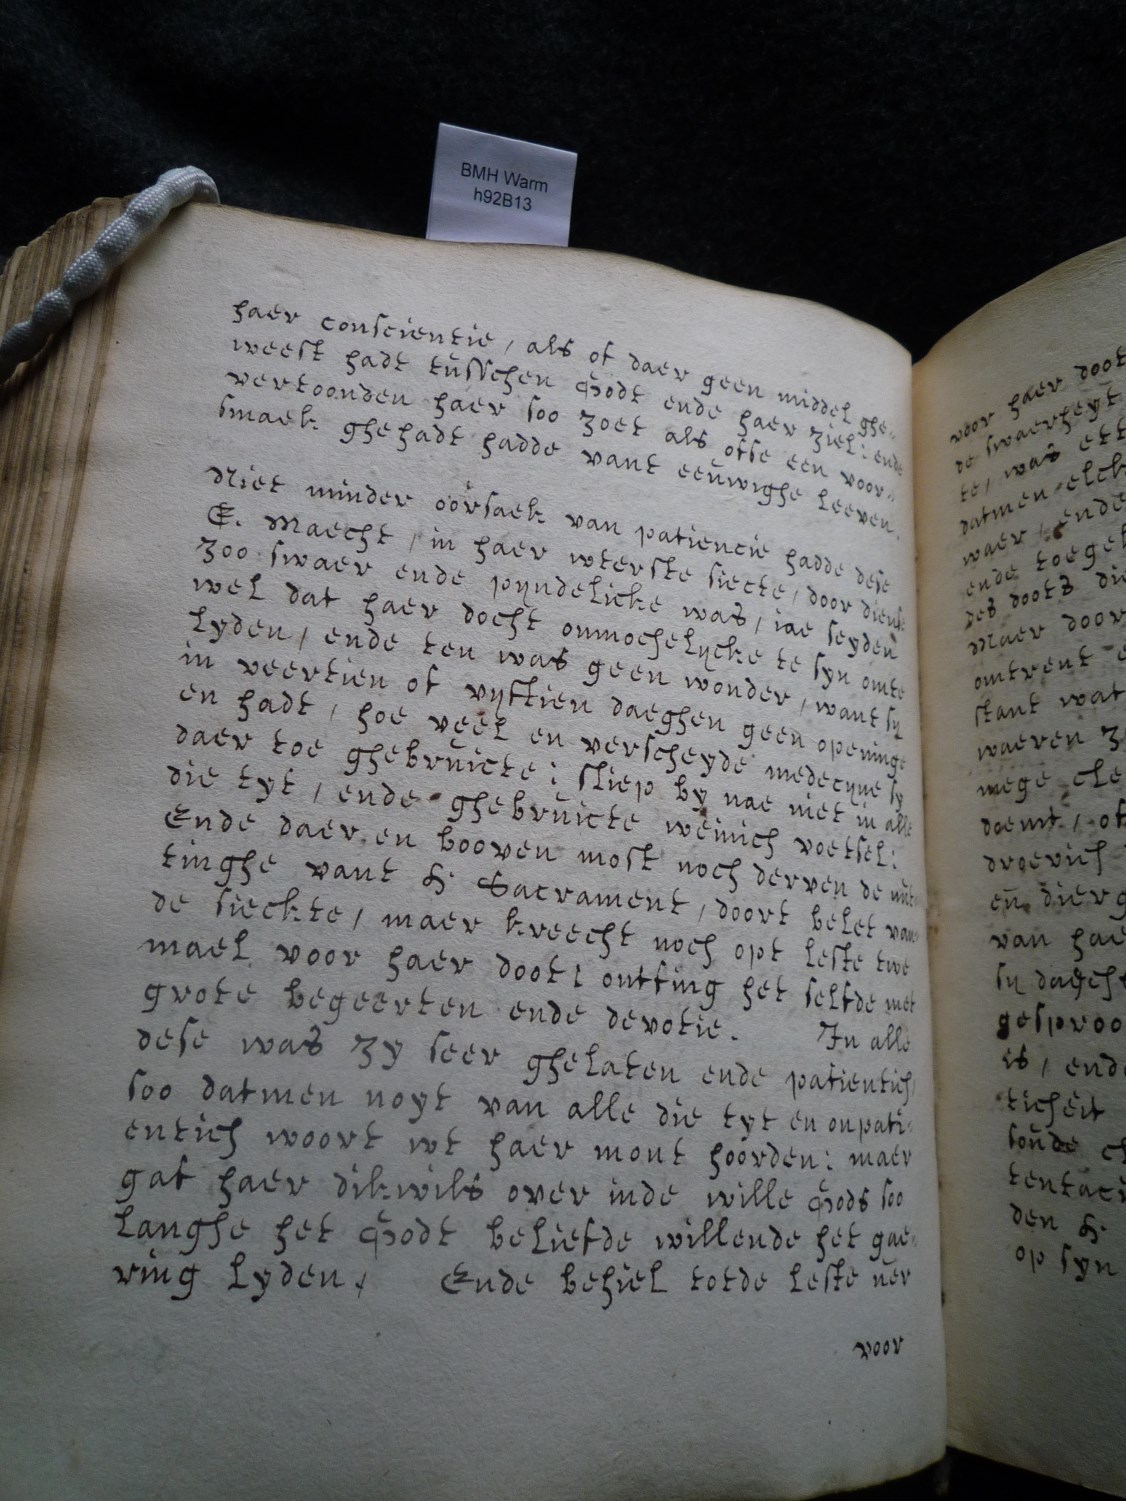 BMH Warm
h92B13
haer conscientie, als of daer geen middel ghe-
weest hadt tusschen Godt ende haer ziel: ende
vertoonden haer soo zoet als ofse een voor-
smaek ghehadt hadde vant eeuwighe leeven.
Niet minder oorsaek van patiencie hadde dese
E. Maecht, in haer wterste siecte, door dien se
zoo swaer ende pyndelicke was, iae seyden
wel dat haer docht onmochelycke te syn omte
lyden, ende ten was geen wonder, want sy
in veertien of vyftien daeghen geen openinge
en hadt, hoe veel en verscheyde medecyne sy
daer toe ghebruicte: sliep by nae niet in alle
die tyt, ende ghebruicte weinich voetsel:
Ende daer en booven most noch derven de nut-
tinghe vant H Sacrament, doort belet van
de sieckte, maer kreecht noch opt leste twe
mael voor haer doot: ontfing het selfde met
grote begeerten ende devotie. In alle
dese was zy seer ghelaten ende patientich,
soo datmen noyt van alle die tyt en onpati-
entich woort wt haer mont hoorden: maer
gaf haer dikwils over inde wille Gods soo
langhe het Godt beliefde willende het gae-
ring lyden, Ende behiel totde leste uer
voor
voor haer doot
de swaerheyt
te, was
datmen elck
waer, ende
ende
des doots
Maer door
omtrent
stant wat
waeren
mege
doemt, of
droevich
en
van hae
sy
gesproo
is, ende
ticheit
soude
den H.
op syn